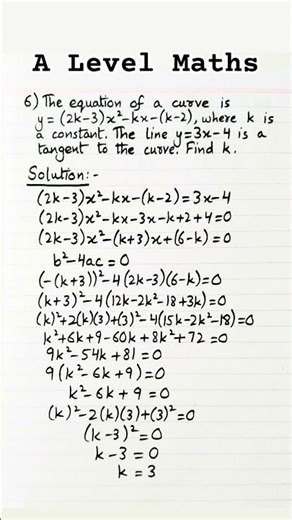 A Level Maths
6) The equation of a curve is
y = (2k-3)x²-kx-(k-2), where k is
a constant. The line y=3x-4 is a
tangent to the curve. Find k.
Solution:-
(2k-3)x²-kx-(k-2)=3x-4
(2k-3)x²-kx-3x-k+2+4=0
(2k-3)x²-(k+3)x+(6-k)=0
b²-4ac=0
(-(k+3))²-4(2k-3)(6-k)=0
(k+3)²-4(12k-2k²-18+3k)=0
(k)²+2(k)(3)+(3)²-4(15k-2k²-18)=0
k²+6k+9-60k+8k²+72=0
9k²-54k+81=0
9(k²-6k+9)=0
k²-6k+9=0
(k)²-2(k)(3)+(3)²=0
(k-3)²=0
k-3=0
k=3